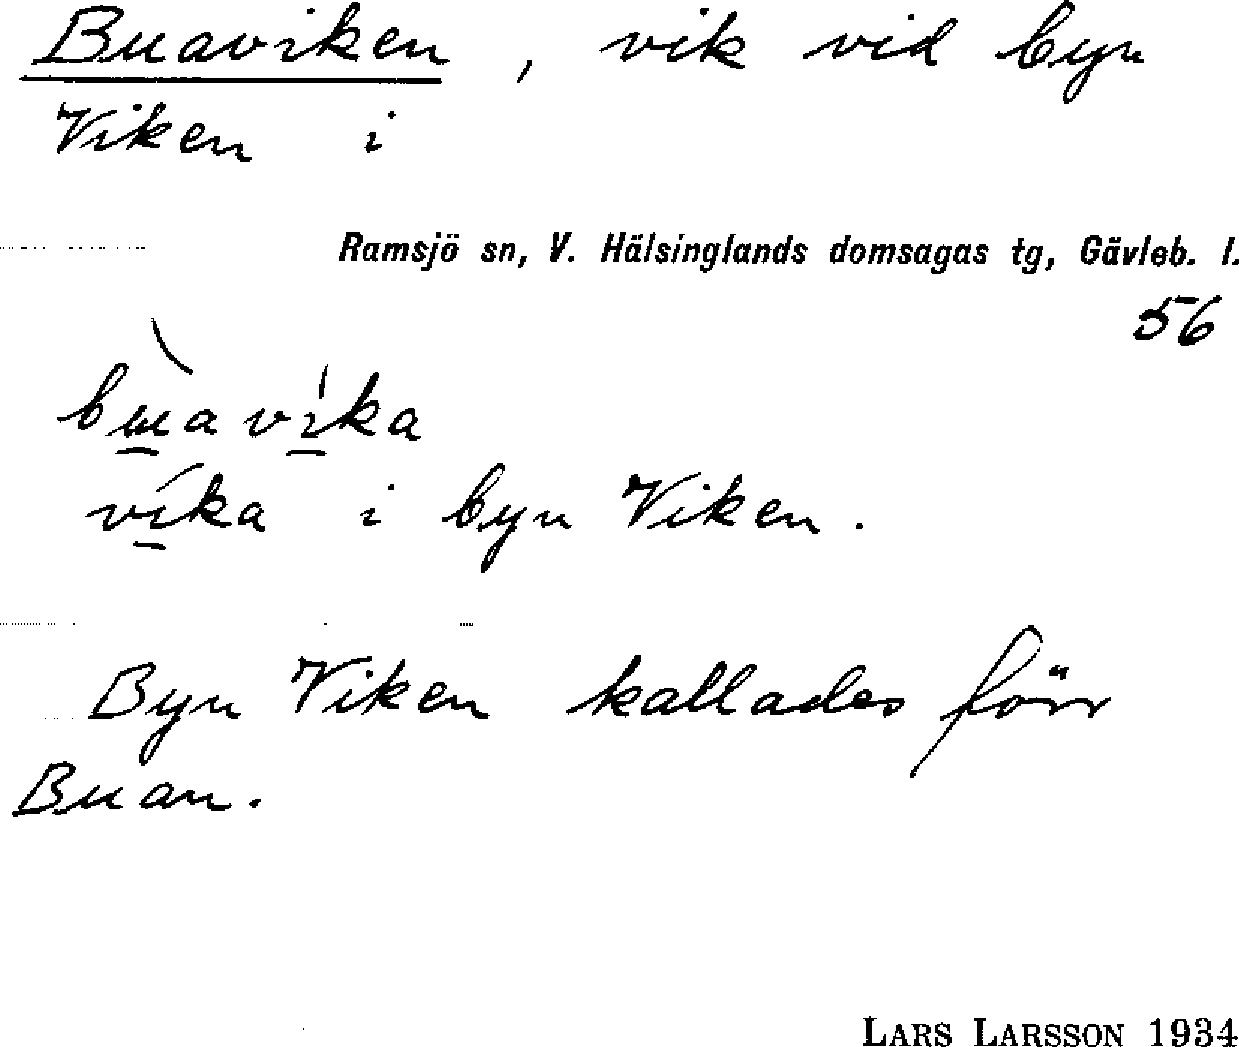 Buaviken, vik vid byn
Viken i
Ramsjö sn, V. Hälsinglands domsagas tg, Gävleb. l.
56
bù̲avi̲̍ka
ví̲ka i byn Viken.
Byn Viken kallades förr
Buan.
LARS LARSSON 1934